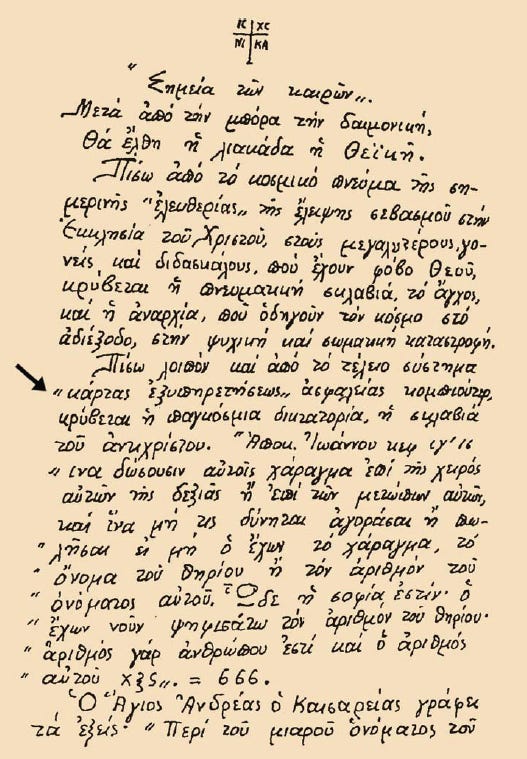 ΙC ΧC
ΝΙ ΚΑ
" Σημεῖα τῶν καιρῶν „.
Μετά ἀπό τήν μπόρα τήν δαιμονική,
θά ἔλθη ἡ λιακάδα ἡ Θεϊκή.
Πίσω ἀπό τό κοσμικό πνεῦμα τῆς ση-
μερινῆς "ἐλευθερίας„ τῆς ἔλειψης σεβασμοῦ στήν
Ἐκκλησία τοῦ Χριστοῦ, στούς μεγαλυτέρους, γο-
νεῖς καί διδασκάλους, πού ἔχουν φόβο Θεοῦ,
κρύβεται ἡ πνευματική σκλαβιά, τό ἄγχος,
καί ἡ ἀναρχία, πού ὁδηγοῦν τόν κόσμο στό
ἀδιέξοδο, στην ψυχική καί σωματική καταστροφή.
Πίσω λοιπόν καί ἀπό τό τέλειο σύστημα
"κάρτας ἐξυπηρετήσεως„ ἀσφαλείας κομπιούτερ,
κρύβεται ἡ παγκόσμια δικτατορία, ἡ σκλαβιά
τοῦ ἀντιχρίστου. "Ἀποκ. Ἰωάννου κεφ ιγ' ις
" ινα δώσουσιν αὐτοῖς χάραγμα ἐπί τῆς χειρός
αὐτῶν τῆς δεξιᾶς ἤ ἐπί τῶν μετώπων αὐτῶν,
καί ἵνα μή τις δύνηται ἀγοράσαι ἤ πω-
" λῆσαι εἰ μή ὁ ἔχων τό χάραγμα, τό
" ὄνομα τοῦ θηρίου ἤ τόν ἀριθμόν τοῦ
" ὀνόματος αὐτοῦ. Ὧδε ἡ σοφία ἐστίν· ὁ
" ἔχων νοῦν ψηφισάτω τόν ἀριθμόν τοῦ θηρίου·
" ἀριθμός γάρ ἀνθρώπου ἐστί καί ὁ ἀριθμός
" αὐτοῦ χξς„. = 666.
Ὁ Ἅγιος Ἀνδρέας ὁ Καισαρείας γράφει
τά ἐξεῖς· " Περί τοῦ μιαροῦ ὀνόματος τοῦ